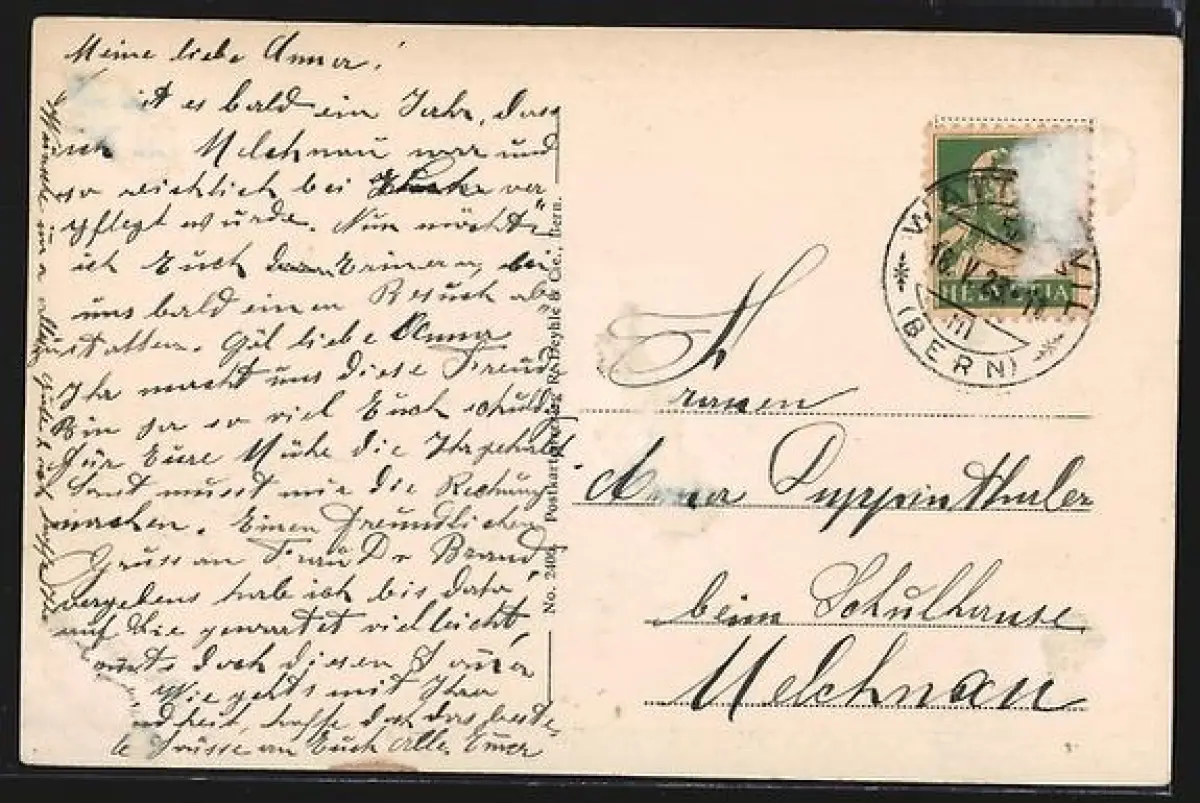 Meine liebe Anna!
ist es bald ein Jahr, dass
ich Melchnau war und
so reichlich bei ver
pflegt wurde. Nun möchte
ich Euch Erinern, bei
uns bald einen Besuch ab
zustatten. Gäl liebe Anna
Ihr macht uns diese Freude
Bin ja so viel Euch schuldig
für Eure Mühe die Ihr gehabt
sonst müsst mir die Rechnung
machen. Einen freundlichen
Gruss an Frau Dr Brand,
vergebens hab ich bis dato
auf Sie gewartet vielleicht
doch diesen
Wie gehts mit Ihrer
dheit, hoffe doch das beste
Grüsse an Euch Alle, Euer
No. 2406 Postkartenverlag R. Deyhle & Cie., Bern.
HELVETIA
WIL
V. 2
III
(BERN)
Frauen
Anna Duppenthaler
beim Schulhause
Melchnau